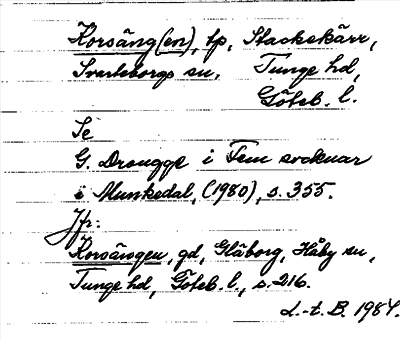 Korsäng(en), tp, Stackekärr,
Svarteborgs sn, Tunge hd,
Göteb. l.
Se
G. Drougge i Fem socknar
i Munkedal, (1980), s. 355.
Jfr:
Korsängen, gd, Glåborg, Håby sn,
Tunge hd, Göteb. l., s. 216.
L.-t. B. 1984.